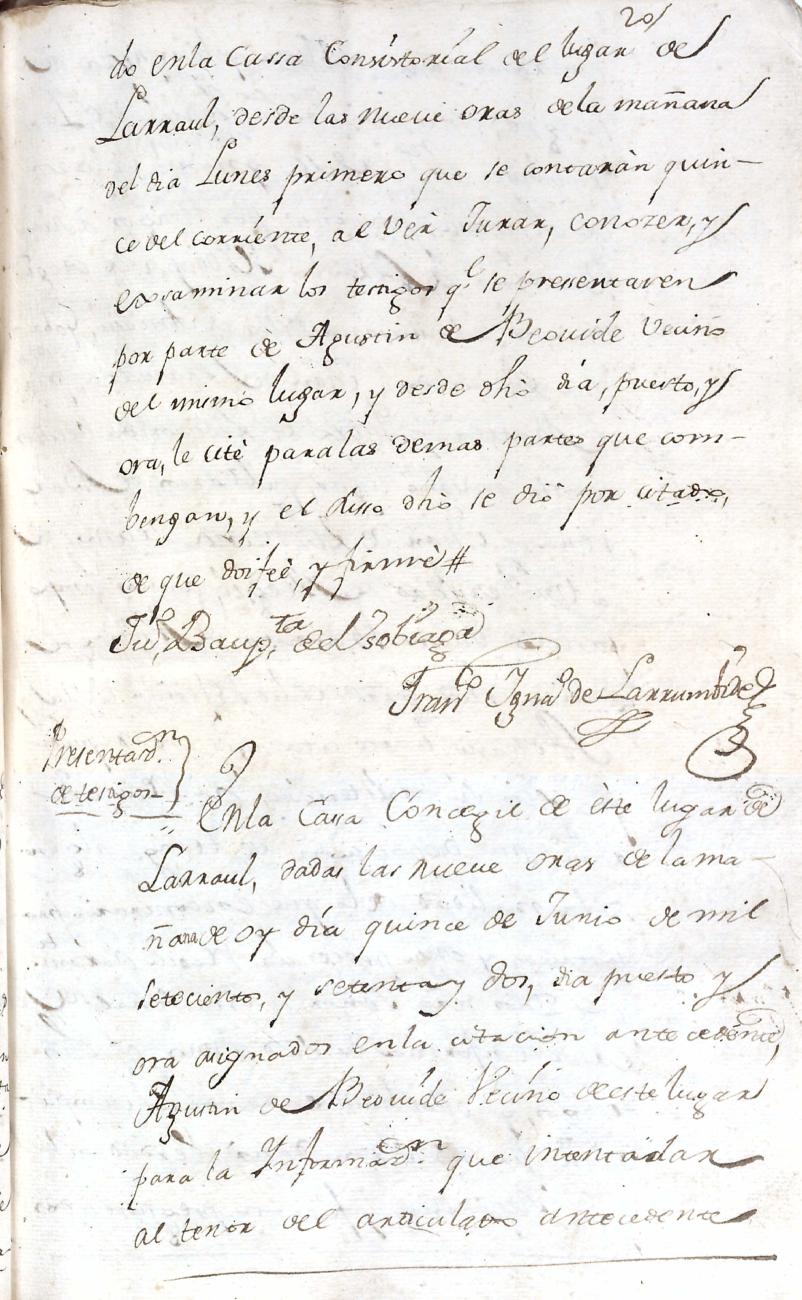 20
do enla Cassa Consistorial del lugar de
Larraul, desde las nueve oras dela mañana
del dia Lunes primero que se contarán quin-
ce del corriente, al ver Jurar, conozer, y
exsaminar los testigos q.e se presentaren
por parte de Agustin de Beovide vecino
del mismo lugar, y desde dho día, puesto, y
ora, le citè para las demas partes que com-
bengan, y el disso dho se diò por citado,
de que doi feè, y firmè #
Ju.o Baup.ta de Usobiaga
Fran.co Igna.o de Larrumbide
Presentaz.on
de testigos
Enla Cassa Concegil de èste lugar de
Larraul, dadas las nueve oras de lama-
ñana de oy día quince de Junio de mil
setecientos, y setenta y dos, dia puesto y
ora asignados enla citación antecedente,
Agustin de Beovide Vecino deste lugar
para la Informaz.on que intenta dar
al tenor del articulado antecedente